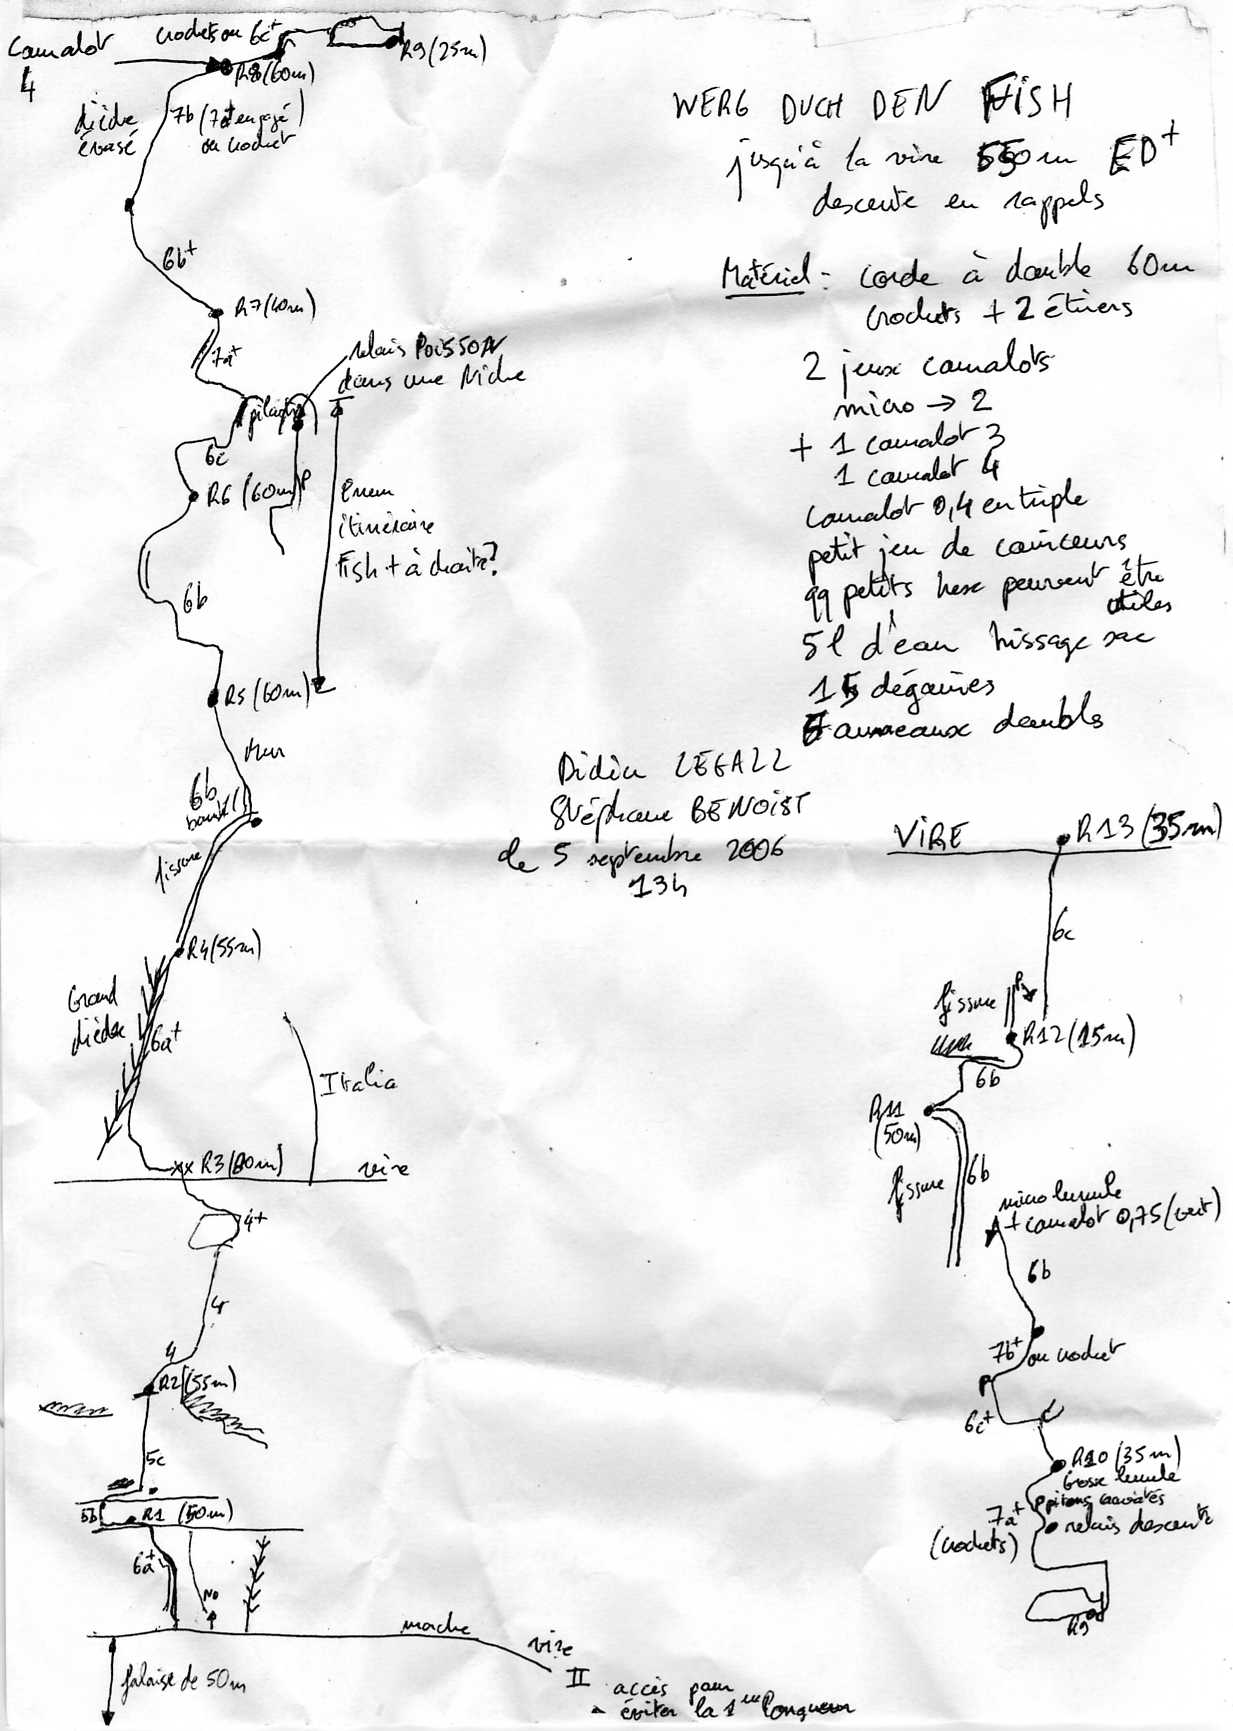 WERG DUCH DEN FISH
jusqu'à la vire 550m ED+
descente en rappels
Matériel : corde à double 60m
crochets + 2 étriers
2 jeux camalots
micro → 2
+ 1 camalot 3
1 camalot 4
camalot 0,4 en triple
petit jeu de coinceurs
qq petits hex peuvent être
utiles
5l d'eau hissage sac
15 dégaines
anneaux doubles
Didier LEGALL
Stéphane BENOIST
le 5 septembre 2006
13h
Camalot
4
crochets ou 6c+
R9 (25m)
R8 (60m)
dièdre
évasé
7b (7a+ engagé)
ou crochet
6b+
R7 (40m)
7a+
relais POISSON
dans une Niche
pilastre
6c
R6 (60m)
P
itinéraire
Fish + à droite?
6b
R5 (60m)
mur
6b
bombé
fissure
R4 (55m)
Grand
dièdre
6a+
Italia
xx R3 (60m)
vire
4+
4
4
R2 (55m)
5c
5b
R1 (50m)
6a+
NO
marche
vire
II
falaise de 50m
accès pour
éviter la 1ère longueur
VIRE
R13 (35m)
6c
fissure
P
R12 (15m)
6b
R11
(50m)
fissure
6b
micro lunule
+ camalot 0,75 (vert)
6b
7b+ ou crochet
P
6c+
R10 (35m)
Grosse lunule
pitons
7a+
(crochets)
relais descente
R9